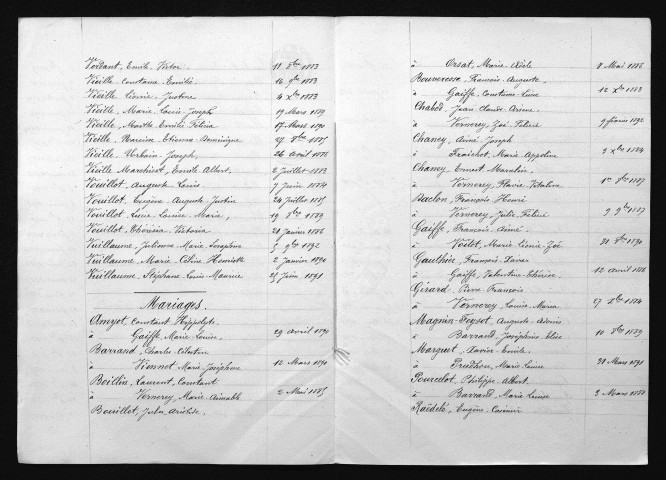 Verdant, Emile Victor. 11 8bre 1883
Vieille, Constance Emilie 16 9bre 1883
Vieille, Léonie Justine 4 Xbre 1883
Vieille, Marie Louis Joseph 19 Mars 1889
Vieille, Marthe Emilie Féléna 17 Mars 1890
Vieille, Narcisse Etienne Dominique 27 8bre 1885
Vieille, Urbain Joseph, 26 avril 1888
Vieille Marchiset, Emile Albert, 2 Juillet 1883
Vouillot, Auguste Louis 7 Juin 1884
Vouillot, Eugène Auguste Justin 24 Juillet 1885
Vouillot, Lucie Louise Marie, 19 8bre 1889
Vouillot, Théréssia Victoria 21 Janvier 1886
Vuillaume, Julienne Marie Joséphine 5 9bre 1892
Vuillaume, Marie Céline Henriette 2 Janvier 1890
Vuillaume, Stéphane Louis Maurice 25 Juin 1891
Mariages.
Amyot, Constant Hippolyte.
à Gaiffe, Marie Louise 29 avril 1890
Barrand, Charles Célestin
à Viennet, Marie Joséphine 12 Mars 1890
Boillin, Laurent, Constant
à Vernerey, Marie Aimable 2 Mai 1885
Bouillet, Jules Aristide.
à Orsat, Marie Adèle 8 Mai 1886
Bouveresse, François Auguste
à Gaiffe, Constance Lucie 12 Xbre 1883
Chabod, Jean Claude Arsène
à Vernerey, Zoé Félicie 9 février 1892
Chaney, Aimé Joseph
à Fraichot, Marie Appoline 3 Xbre 1884
Chaney, Ernest Marcelin
à Vernerey, Flavie Vitaline 1er 8bre 1887
Duclon, François Henri
à Vernerey, Julie Féline 9 9bre 1887
Gaiffe, François, Aimé
à Voitot, Marie Léonie Zoé 21 8bre 1890
Gauthier, François Xavier
à Gaiffe, Valentine Thérèse 12 avril 1886
Girard, Pierre François
à Vernerey, Louise, Maria 27 8bre 1884
Magnin-Feysot, Auguste Adonis
à Barrand, Joséphine Elise 10 8bre 1889
Marguet, Xavier Emile
à Prudhon, Marie Louise 31 Mars 1891
Pourcelot, Philippe Albert
à Barrand, Marie Louise 3 Mars 1886
Raëdelé, Eugène Casimir